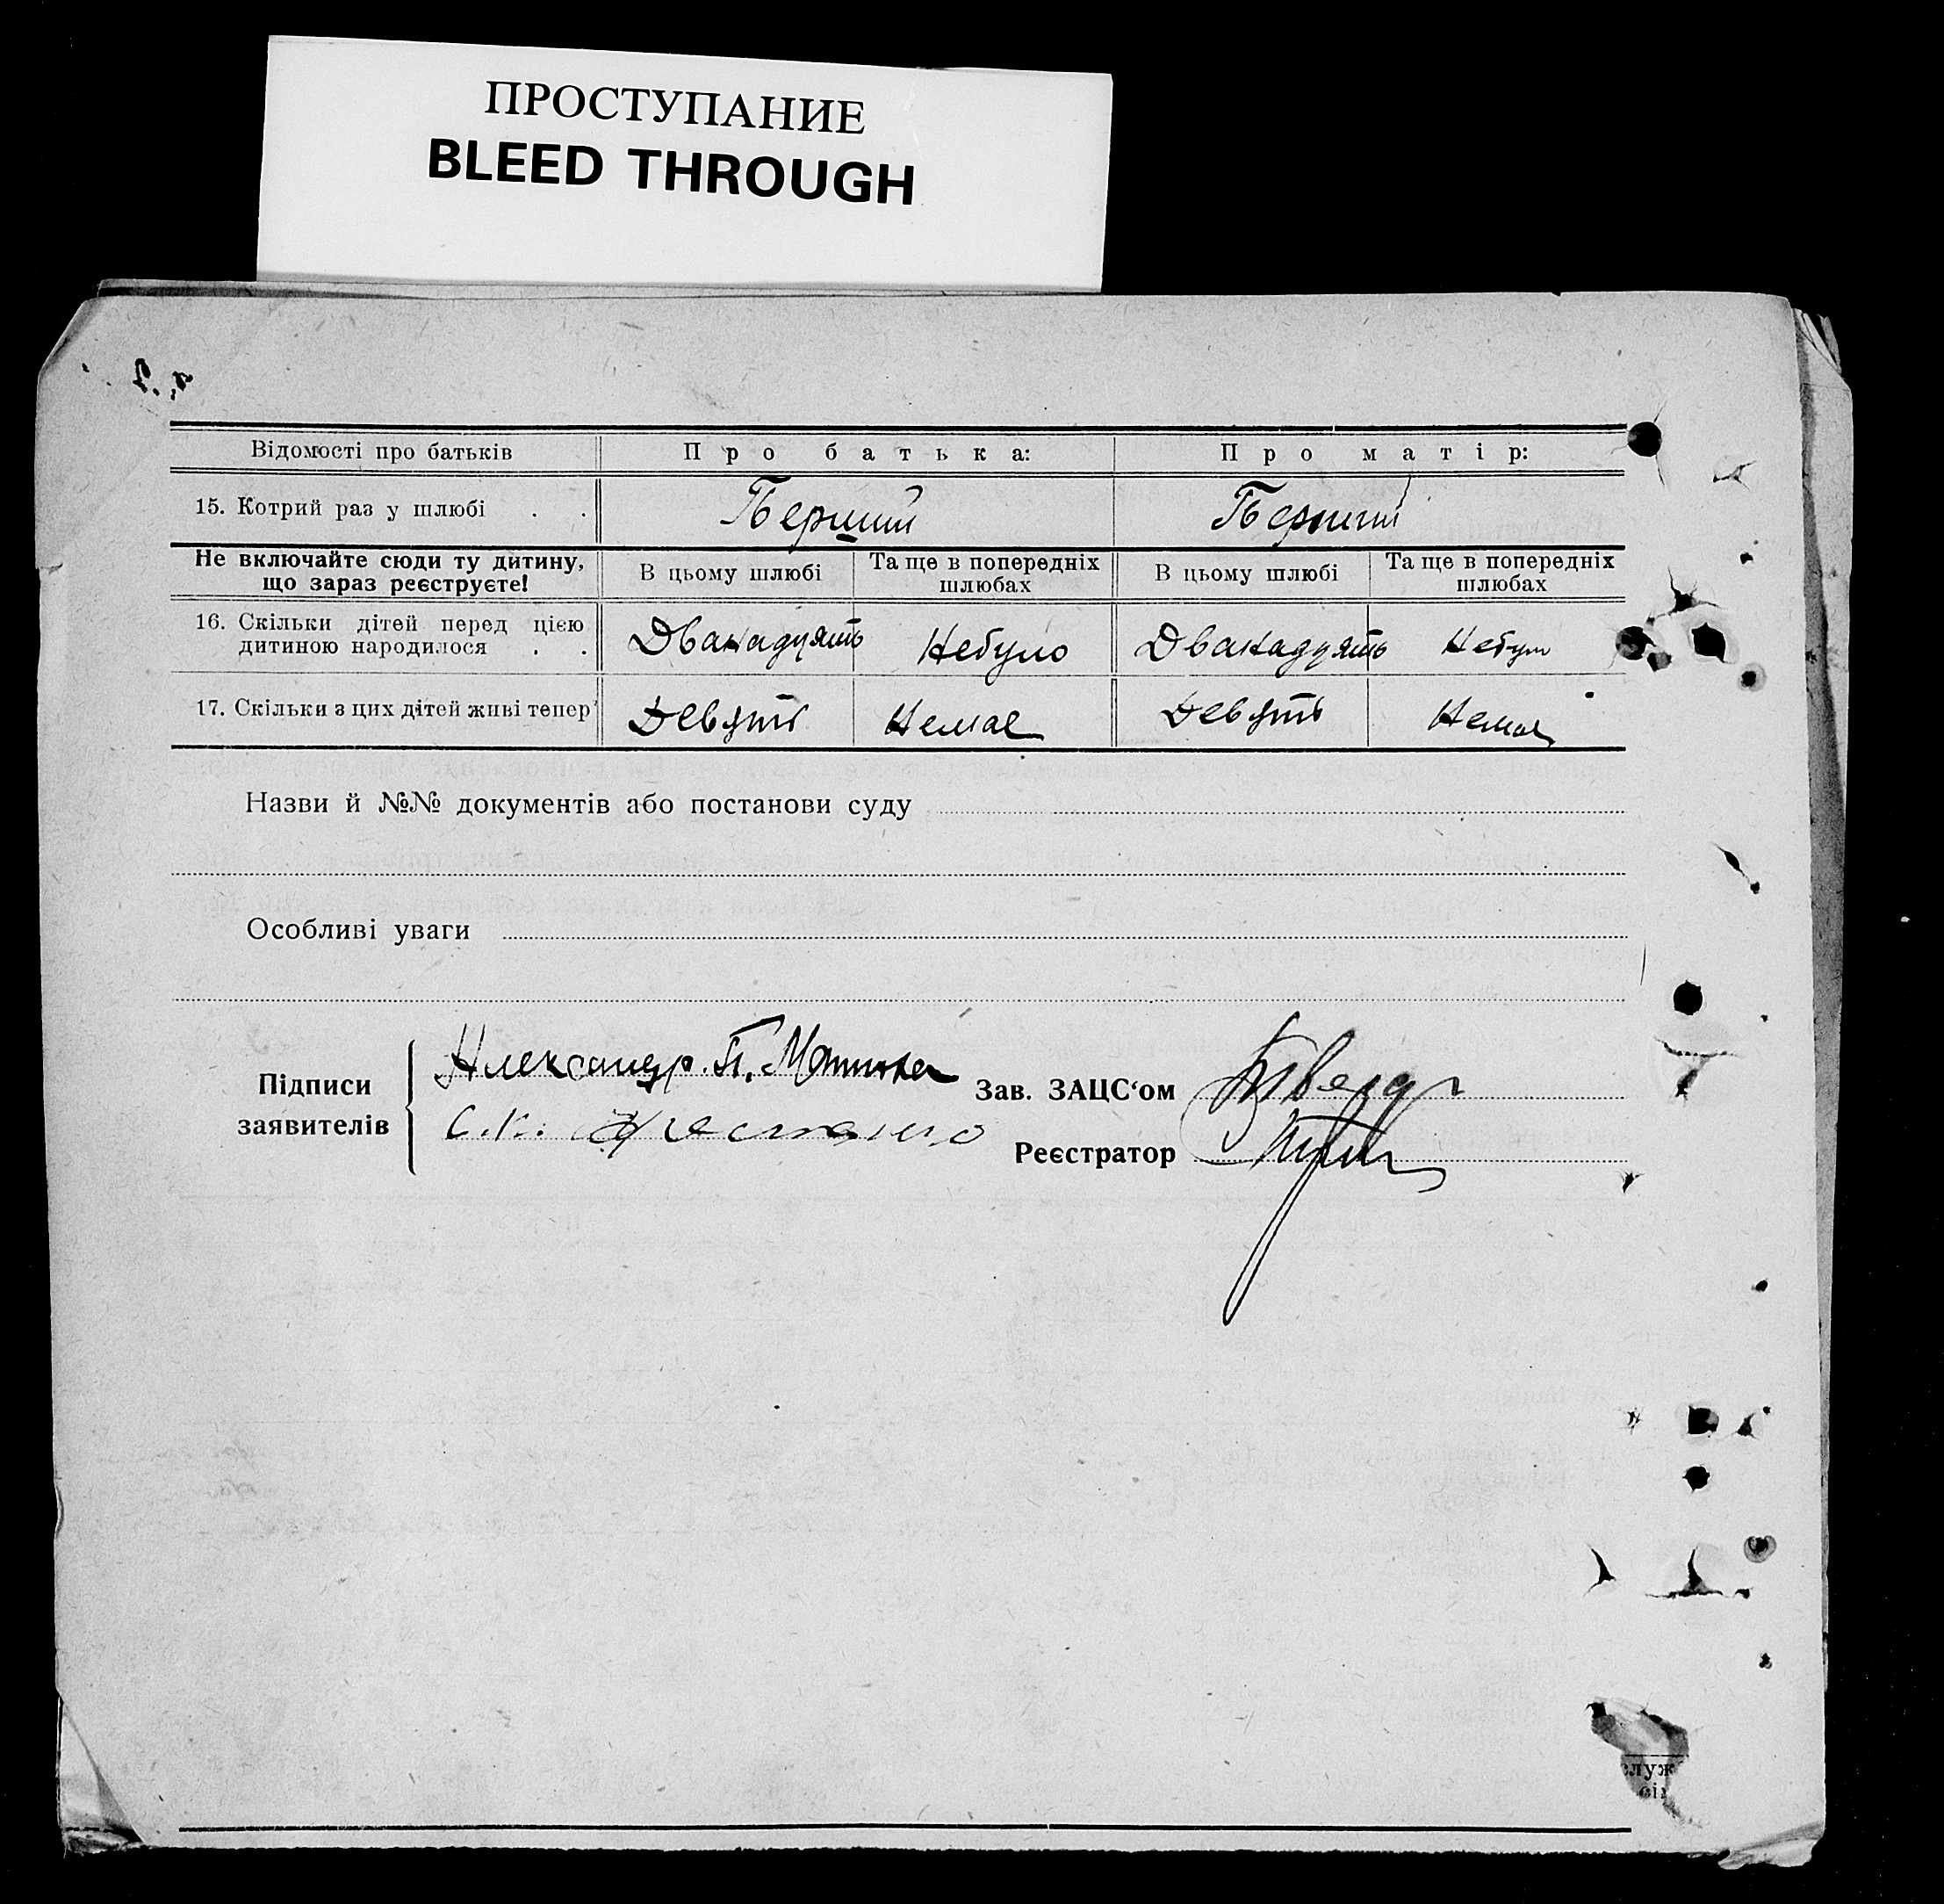 ПРОСТУПАНИЕ
BLEED THROUGH
Відомості про батьків Про батька: Про матір:
15. Котрий раз у шлюбі . . Перший Перший
Не включайте сюди ту дитину, що зараз реєструєте! В цьому шлюбі Та ще в попередніх шлюбах В цьому шлюбі Та ще в попередніх шлюбах
16. Скільки дітей перед цією дитиною народилося . . Дванадцять Небуло Дванадцять Небуло
17. Скільки з цих дітей живі тепер Девять Немає Девять Немає
Назви й №№ документів або постанови суду
Особливі уваги
Підписи заявителів Александр. П.
С.К.
Зав. ЗАЦС‘ом
Реєстратор
служ
сім